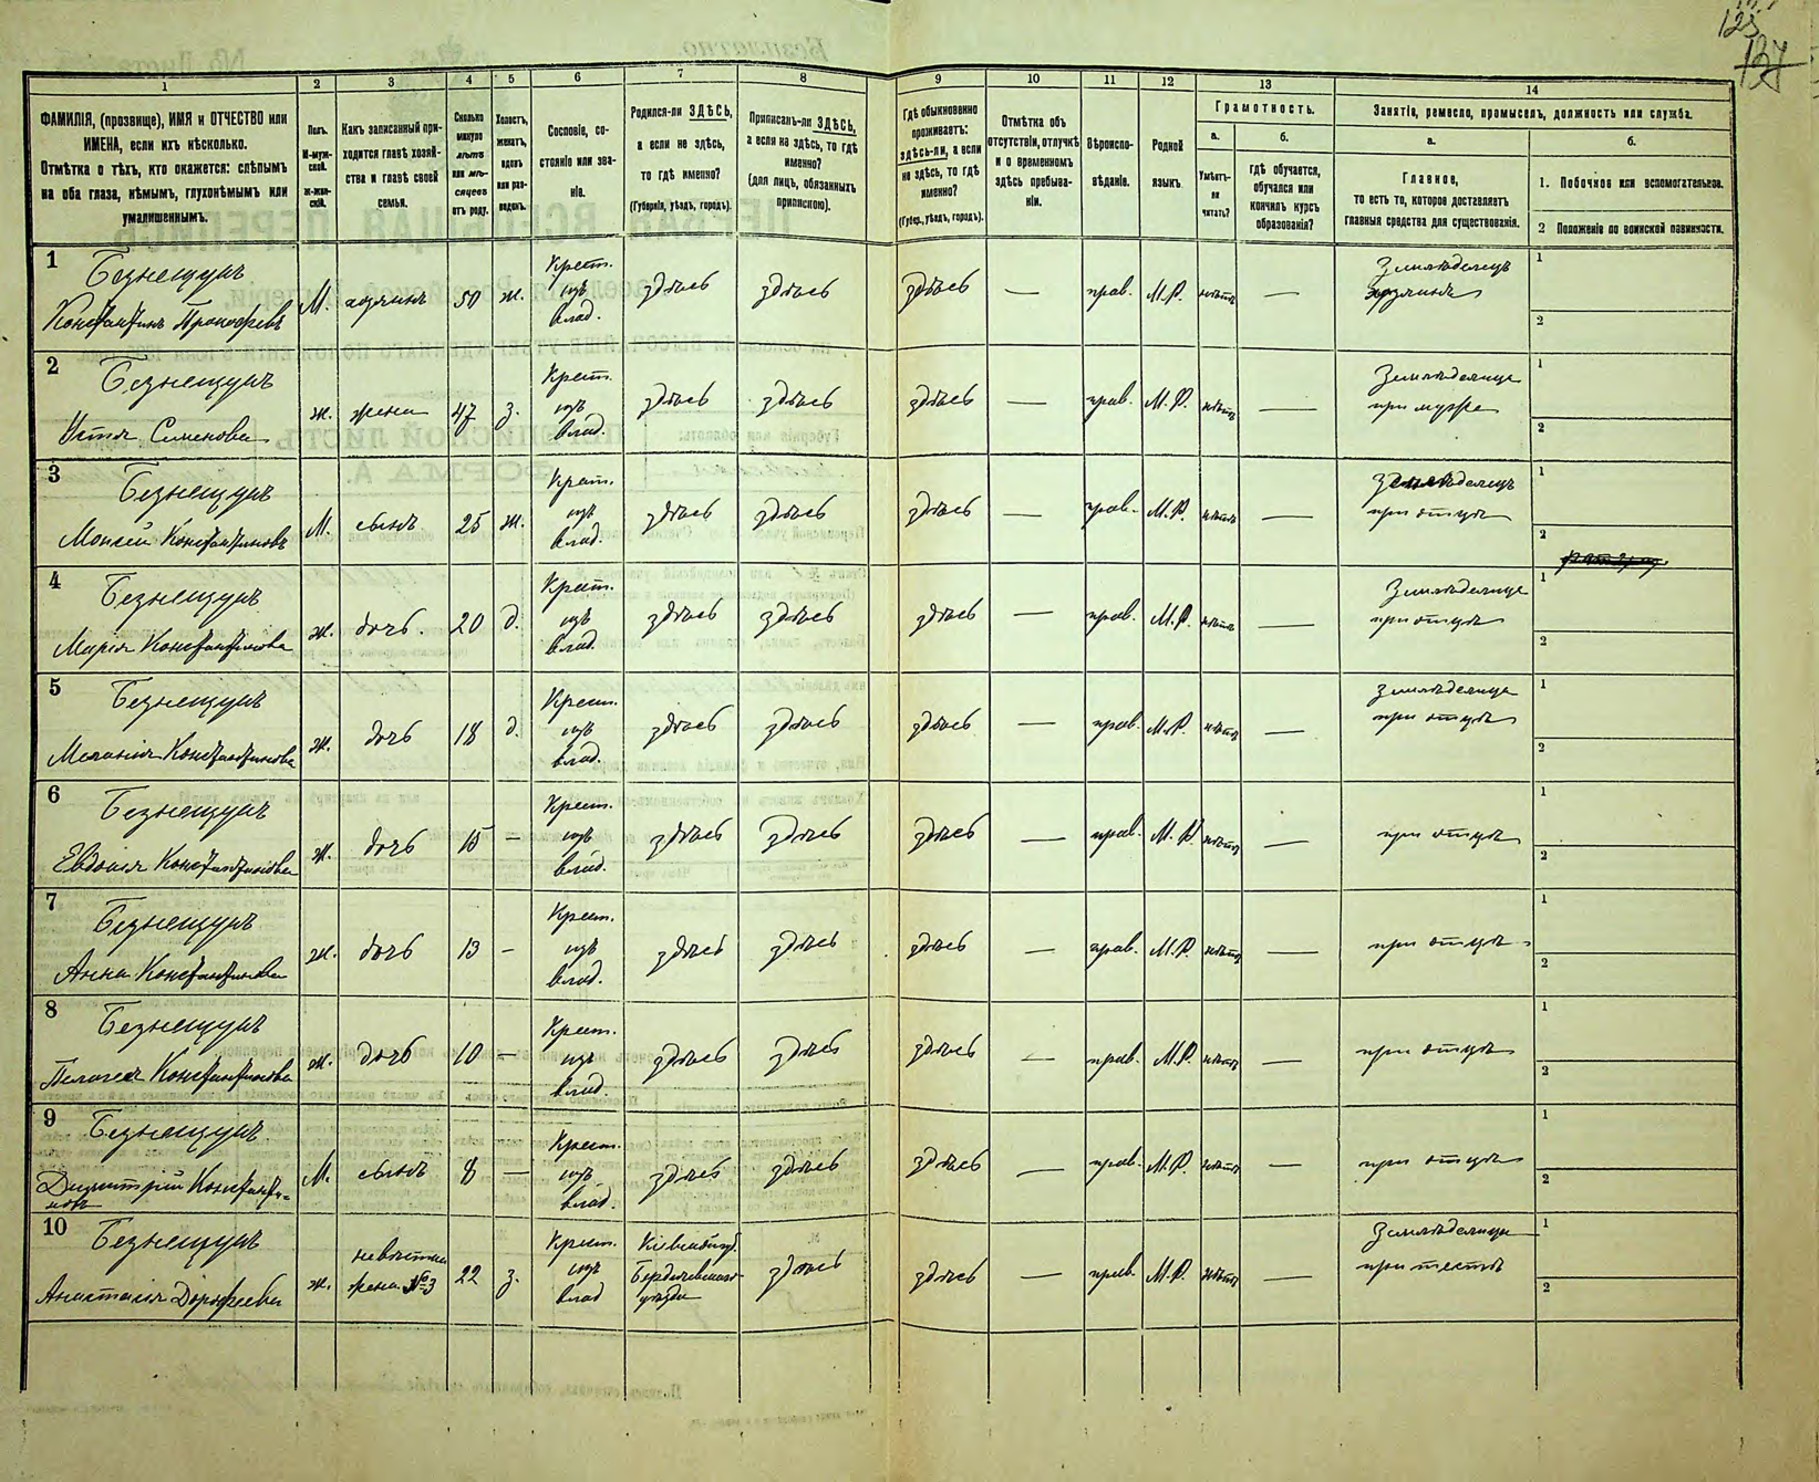 125
137
1
2
3
4
5
6
7
8
9
10
11
12
13
14
ФАМИЛІЯ, (прозвище), ИМЯ и ОТЧЕСТВО или
ИМЕНА, если ихъ нѣсколько.
Отмѣтка о тѣхъ, кто окажется: слѣпымъ
на оба глаза, нѣмымъ, глухонѣмымъ или
умалишеннымъ.
Полъ.
М-муж-
ской.
Ж-жен-
скій.
Какъ записанный при-
ходится главѣ хозяй-
ства и главѣ своей
семьи.
Сколько
минуло
лѣтъ
или мѣ-
сяцевъ
отъ роду.
Холостъ,
женатъ,
вдовъ
или раз-
веденъ.
Сословіе, со-
стояніе или зва-
ніе.
Родился-ли ЗДѢСЬ,
а если не здѣсь,
то гдѣ именно?
(Губернія, уѣздъ, городъ).
Приписанъ-ли ЗДѢСЬ,
а если не здѣсь, то гдѣ
именно?
(для лицъ, обязанныхъ
припискою).
Гдѣ обыкновенно
проживаетъ:
здѣсь-ли, а если
не здѣсь, то гдѣ
именно?
(Губер., уѣздъ, городъ).
Отмѣтка объ
отсутствіи, отлучкѣ
и о временномъ
здѣсь пребыва-
ніи.
Вѣроиспо-
вѣданіе.
Родной
языкъ.
Грамотность.
а.
б.
Умѣетъ-
ли
читать?
гдѣ обучается,
обучался или
кончилъ курсъ
образованія?
Занятіе, ремесло, промыселъ, должность или служба.
а.
б.
Главное,
то есть то, которое доставляетъ
главныя средства для существованія.
1. Побочное или вспомогательное.
2 Положеніе по воинской повинности.
1
Безнещукъ
Константинъ Прокофьевъ
М. хозяинъ 50 ж. Крест. изъ влад. здѣсь здѣсь здѣсь — прав. М.Р. нѣтъ — Земледѣлецъ хозяинъ
1
2
2
Безнещукъ
Устья Семенова
ж. жена 47 з. Крест. изъ влад. здѣсь здѣсь здѣсь — прав. М.Р. нѣтъ — Земледѣлица при мужѣ
1
2
3
Безнещукъ
Моисей Константиновъ
М. сынъ 25 ж. Крест. изъ влад. здѣсь здѣсь здѣсь — прав. М.Р. нѣтъ — Земледѣлецъ при отцѣ
1
2
4
Безнещукъ
Марія Константинова
ж. дочь. 20 д. Крест. изъ влад. здѣсь здѣсь здѣсь — прав. М.Р. нѣтъ — Земледѣлица при отцѣ
1
2
5
Безнещукъ
Меланія Константинова
ж. дочь 18 д. Крест. изъ влад. здѣсь здѣсь здѣсь — прав. М.Р. нѣтъ — Земледѣлица при отцѣ
1
2
6
Безнещукъ
Евдокія Константинова
ж. дочь 15 — Крест. изъ влад. здѣсь здѣсь здѣсь — прав. М.Р. нѣтъ — при отцѣ
1
2
7
Безнещукъ
Анна Константинова
ж. дочь 13 — Крест. изъ влад. здѣсь здѣсь здѣсь — прав. М.Р. нѣтъ — при отцѣ
1
2
8
Безнещукъ
Пелагея Константинова
ж. дочь 10 — Крест. изъ влад. здѣсь здѣсь здѣсь — прав. М.Р. нѣтъ — при отцѣ
1
2
9
Безнещукъ
Димитрій Константи-
новъ
М. сынъ 8 — Крест. изъ влад. здѣсь здѣсь здѣсь — прав. М.Р. нѣтъ — при отцѣ
1
2
10
Безнещукъ
Анастасія Дорофеева
ж. невѣстка жена №3 22 з. Крест. изъ влад Кіевской губ. Бердичевскаго уѣзда здѣсь здѣсь — прав. М.Р. нѣтъ — Земледѣлица при тестѣ
1
2